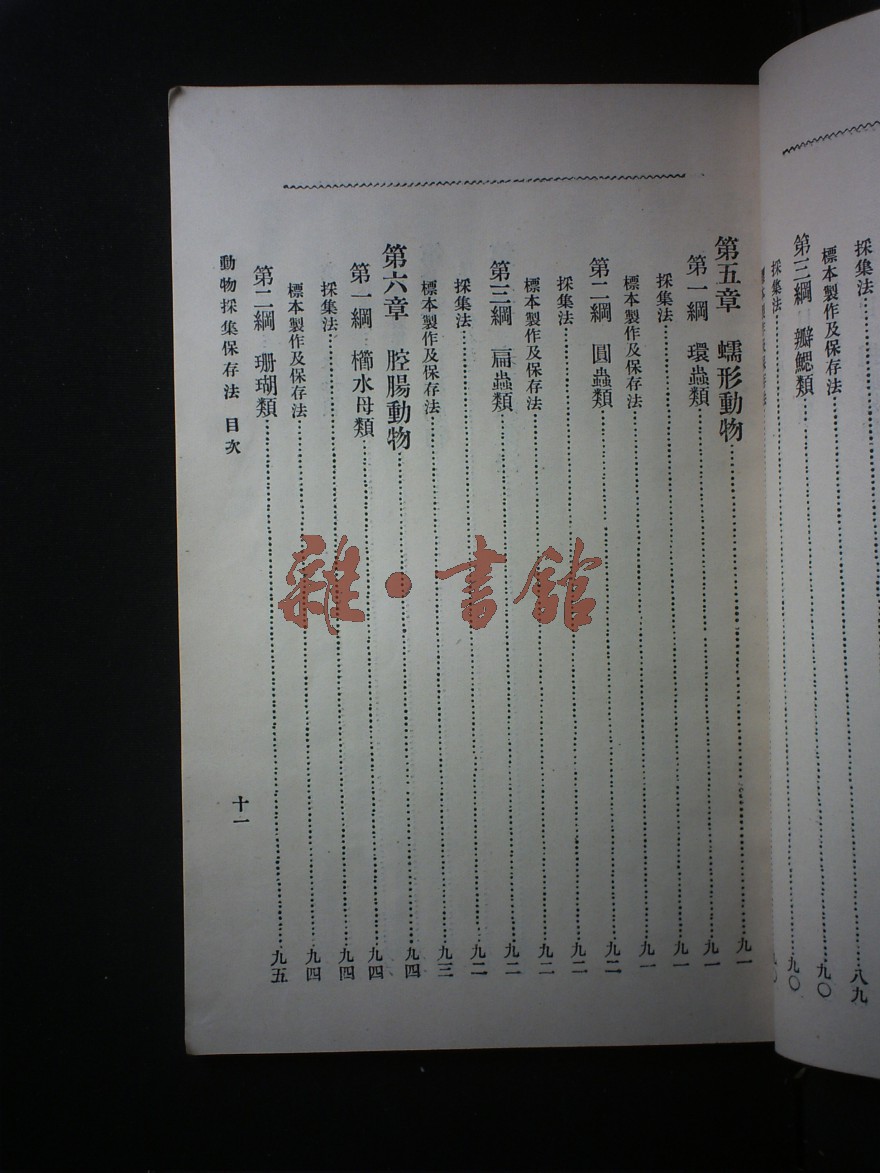 採集法……八九
標本製作及保存法……九〇
第三綱 瓣鰓類……九〇
採集法
第五章 蠕形動物……九一
第一綱 環蟲類……九一
採集法……九一
標本製作及保存法……九一
第二綱 圓蟲類……九二
採集法……九二
標本製作及保存法……九二
第三綱 扁蟲類……九二
採集法……九二
標本製作及保存法……九三
第六章 腔腸動物……九四
第一綱 櫛水母類……九四
採集法……九四
標本製作及保存法……九四
第二綱 珊瑚類……九五
動物採集保存法 目次
十一
雜·書館